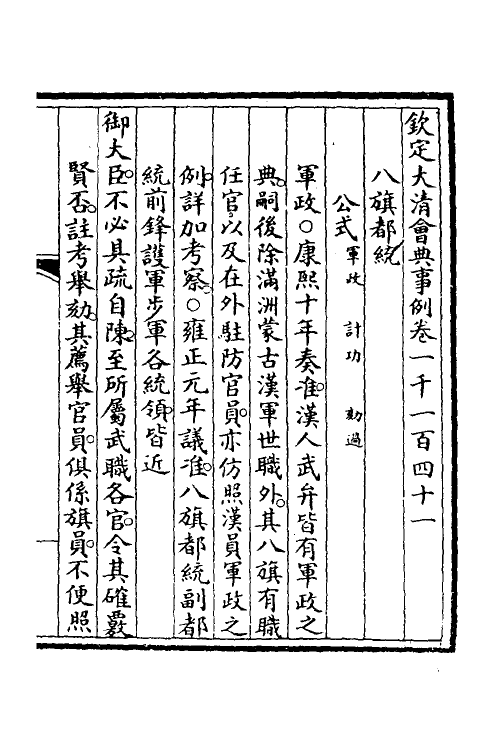 欽定大清會典事例卷一千一百四十一
八旗都統
公式 軍政 計功 劾過
軍政○康熙十年奏准。漢人武弁皆有軍政之
典。嗣後除滿洲蒙古漢軍世職外。其八旗有職
任官。以及在外駐防官員。亦仿照漢員軍政之
例。詳加考察。○雍正元年議准。八旗都統副都
統前鋒護軍步軍各統領。皆近
御大臣。不必具疏自陳。至所屬武職各官。令其確覈
賢否。註考舉劾。其薦舉官員。俱係旗員。不便照